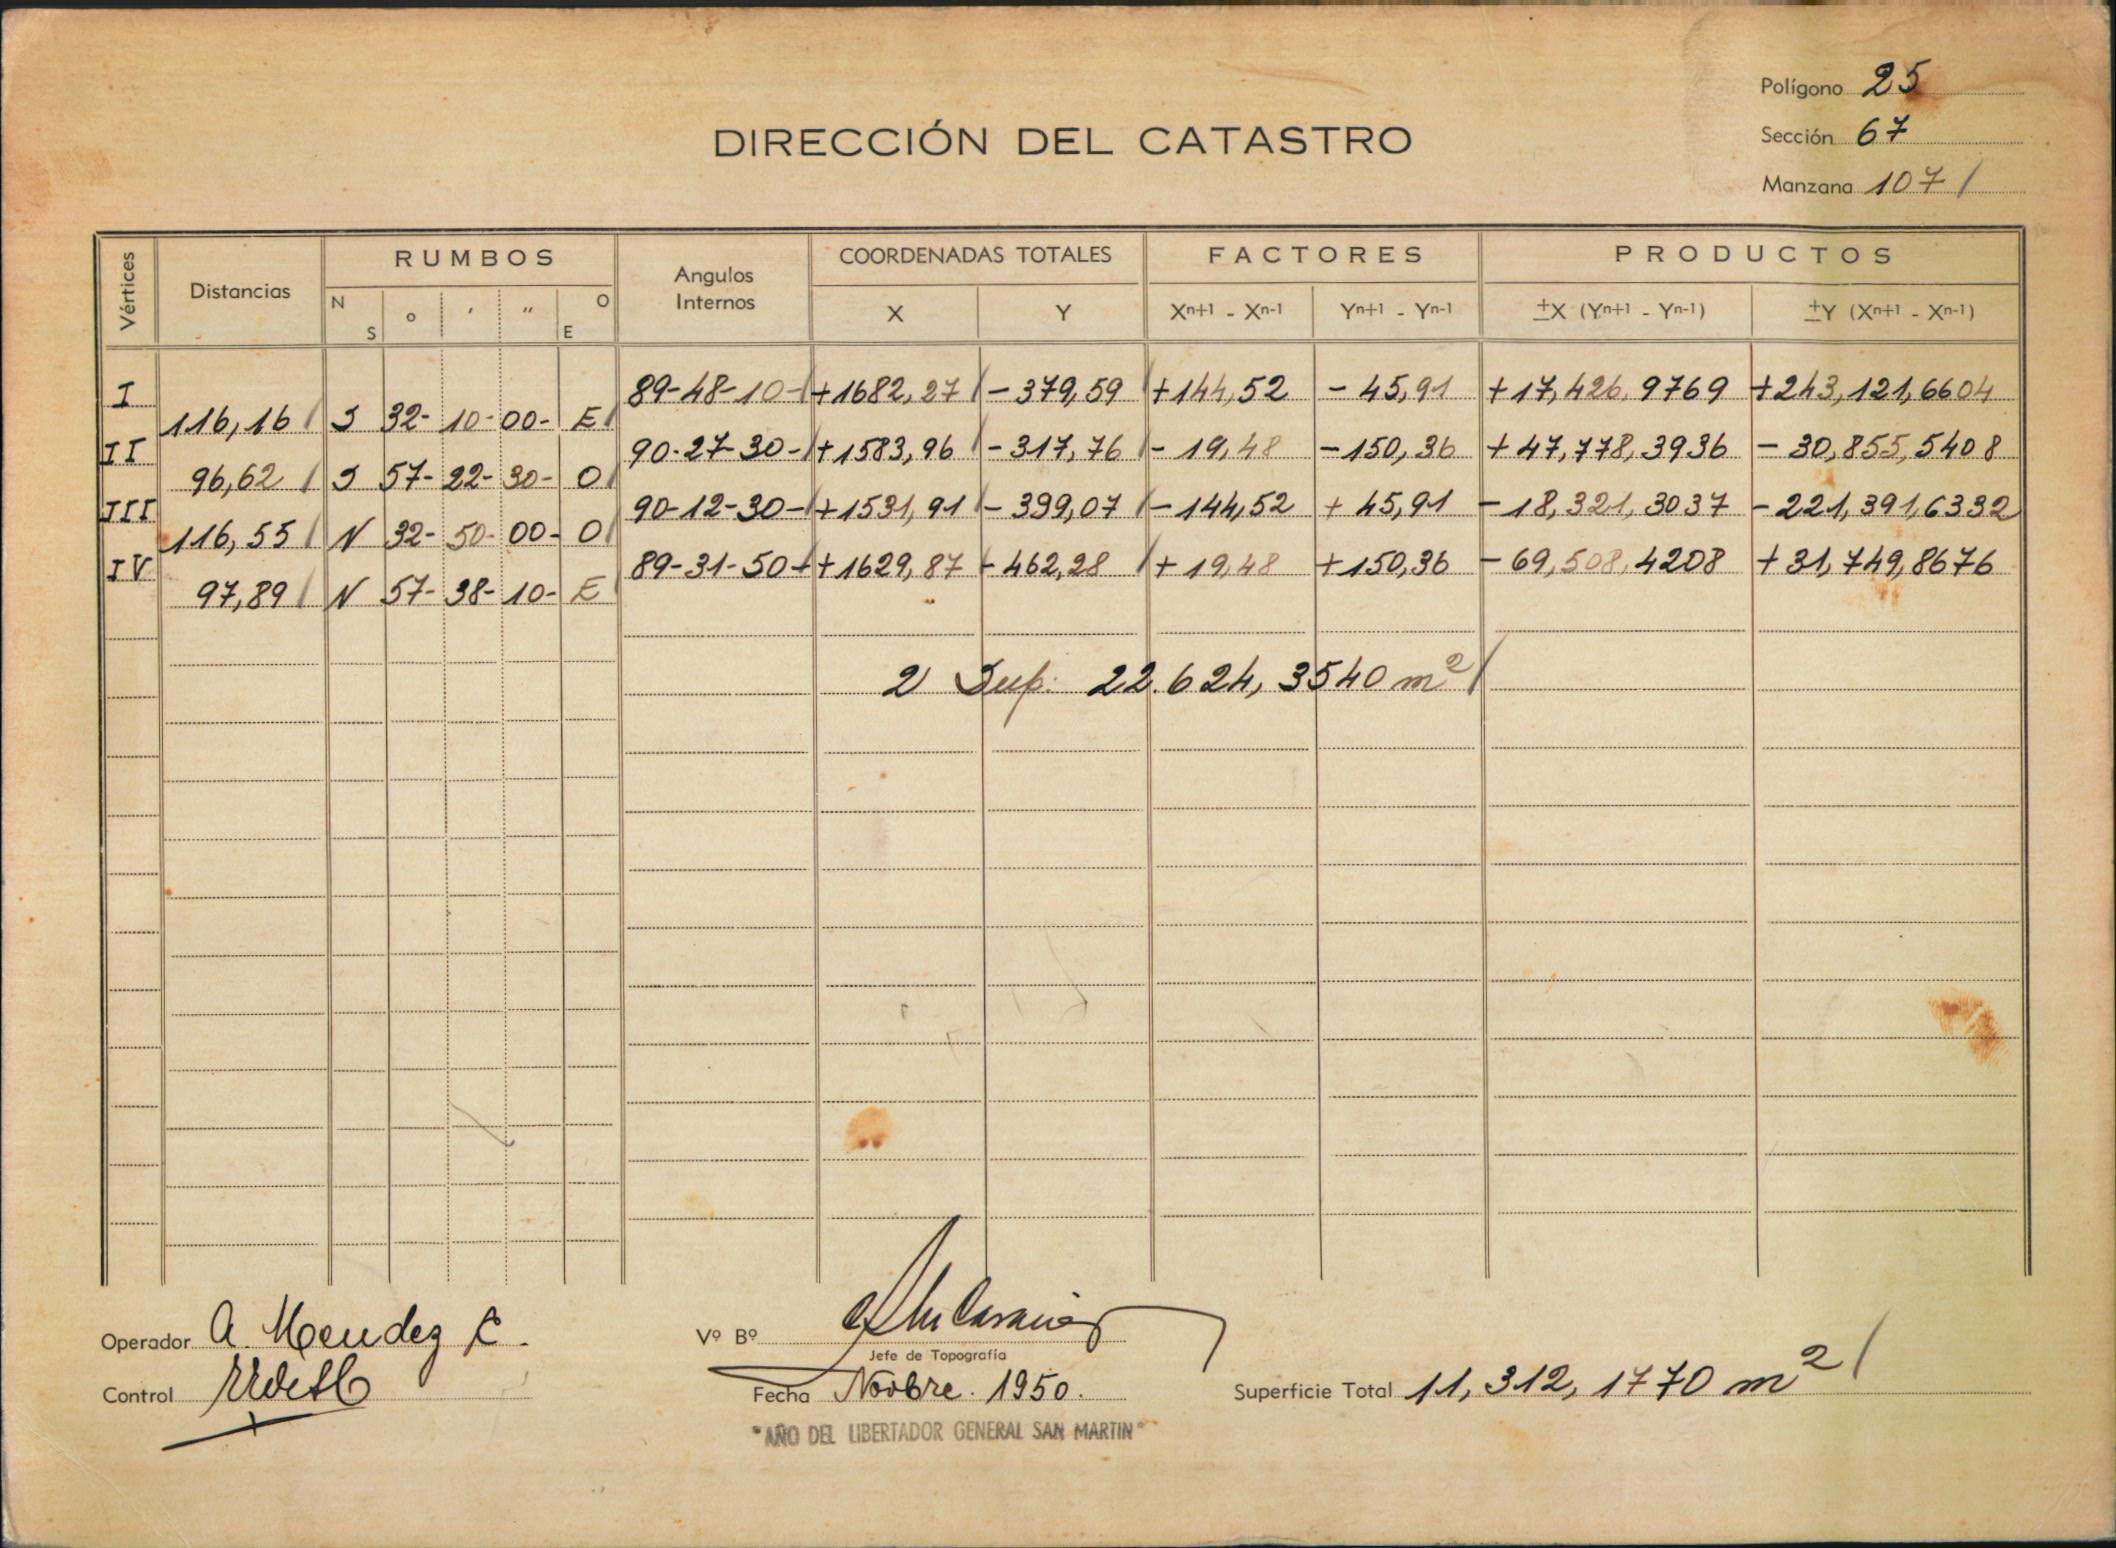 Polígono 25
DIRECCIÓN DEL CATASTRO
Sección 67
Manzana 107
Vértices Distancias RUMBOS Angulos Internos COORDENADAS TOTALES FACTORES PRODUCTOS
N S ° ' " O E X Y Xn+1 - Xn-1 Yn+1 - Yn-1 ±X (Yn+1 - Yn-1) ±Y (Xn+1 - Xn-1)
I 89-48-10- +1682,27 -379,59 +144,52 -45,91 +17,426,9769 +243,121,6604
116,16 S 32- 10- 00- E
II 90-27-30- +1583,96 -317,76 -19,48 -150,36 +47,778,3936 -30,855,5408
96,62 S 57- 22- 30- O
III 90-12-30- +1531,91 -399,07 -144,52 +45,91 -18,321,3037 -221,391,6332
116,55 N 32- 50- 00- O
IV 89-31-50- +1629,87 -462,28 +19,48 +150,36 -69,508,4208 +31,749,8676
97,89 N 57- 38- 10- E
2 Sup. 22.624,3540 m²
Operador A. Mendez C.
Vº Bº
Jefe de Topografía
Control
Fecha Novbre. 1950.
Superficie Total 11,312,1770 m²
"AÑO DEL LIBERTADOR GENERAL SAN MARTIN"